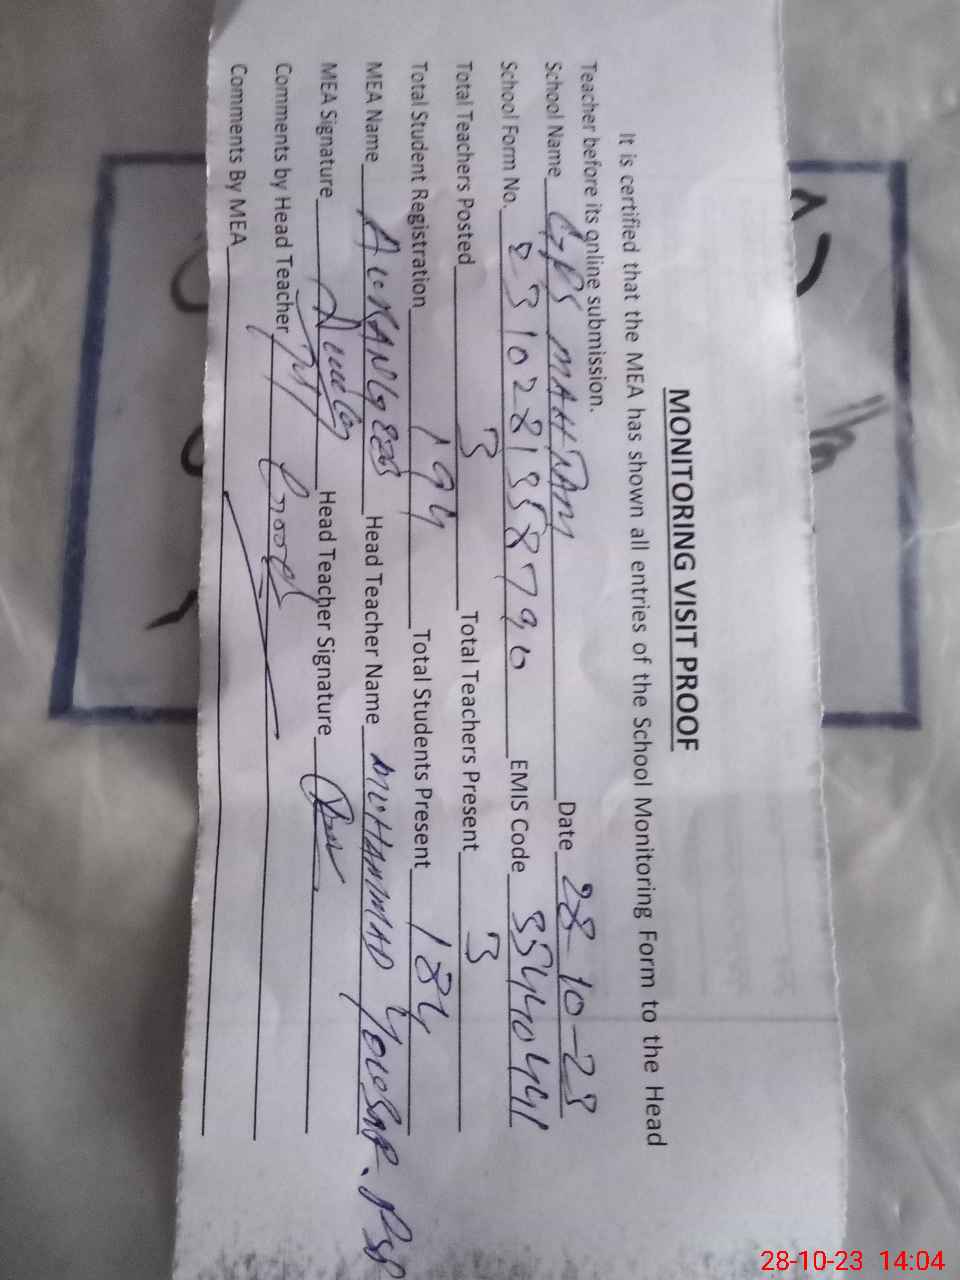 MONITORING VISIT PROOF
It is certified that the MEA has shown all entries of the School Monitoring Form to the Head
Teacher before its online submission.
School Name GPS MAHRAM Date 28-10-23
School Form No. EMIS Code 35440441
Total Teachers Posted 3 Total Teachers Present 3
Total Student Registration 194 Total Students Present 184
MEA Name AURANGZEB Head Teacher Name MUHAMMAD YOUSAF. PST
MEA Signature Head Teacher Signature
Comments by Head Teacher Good
Comments By MEA
28-10-23 14:04